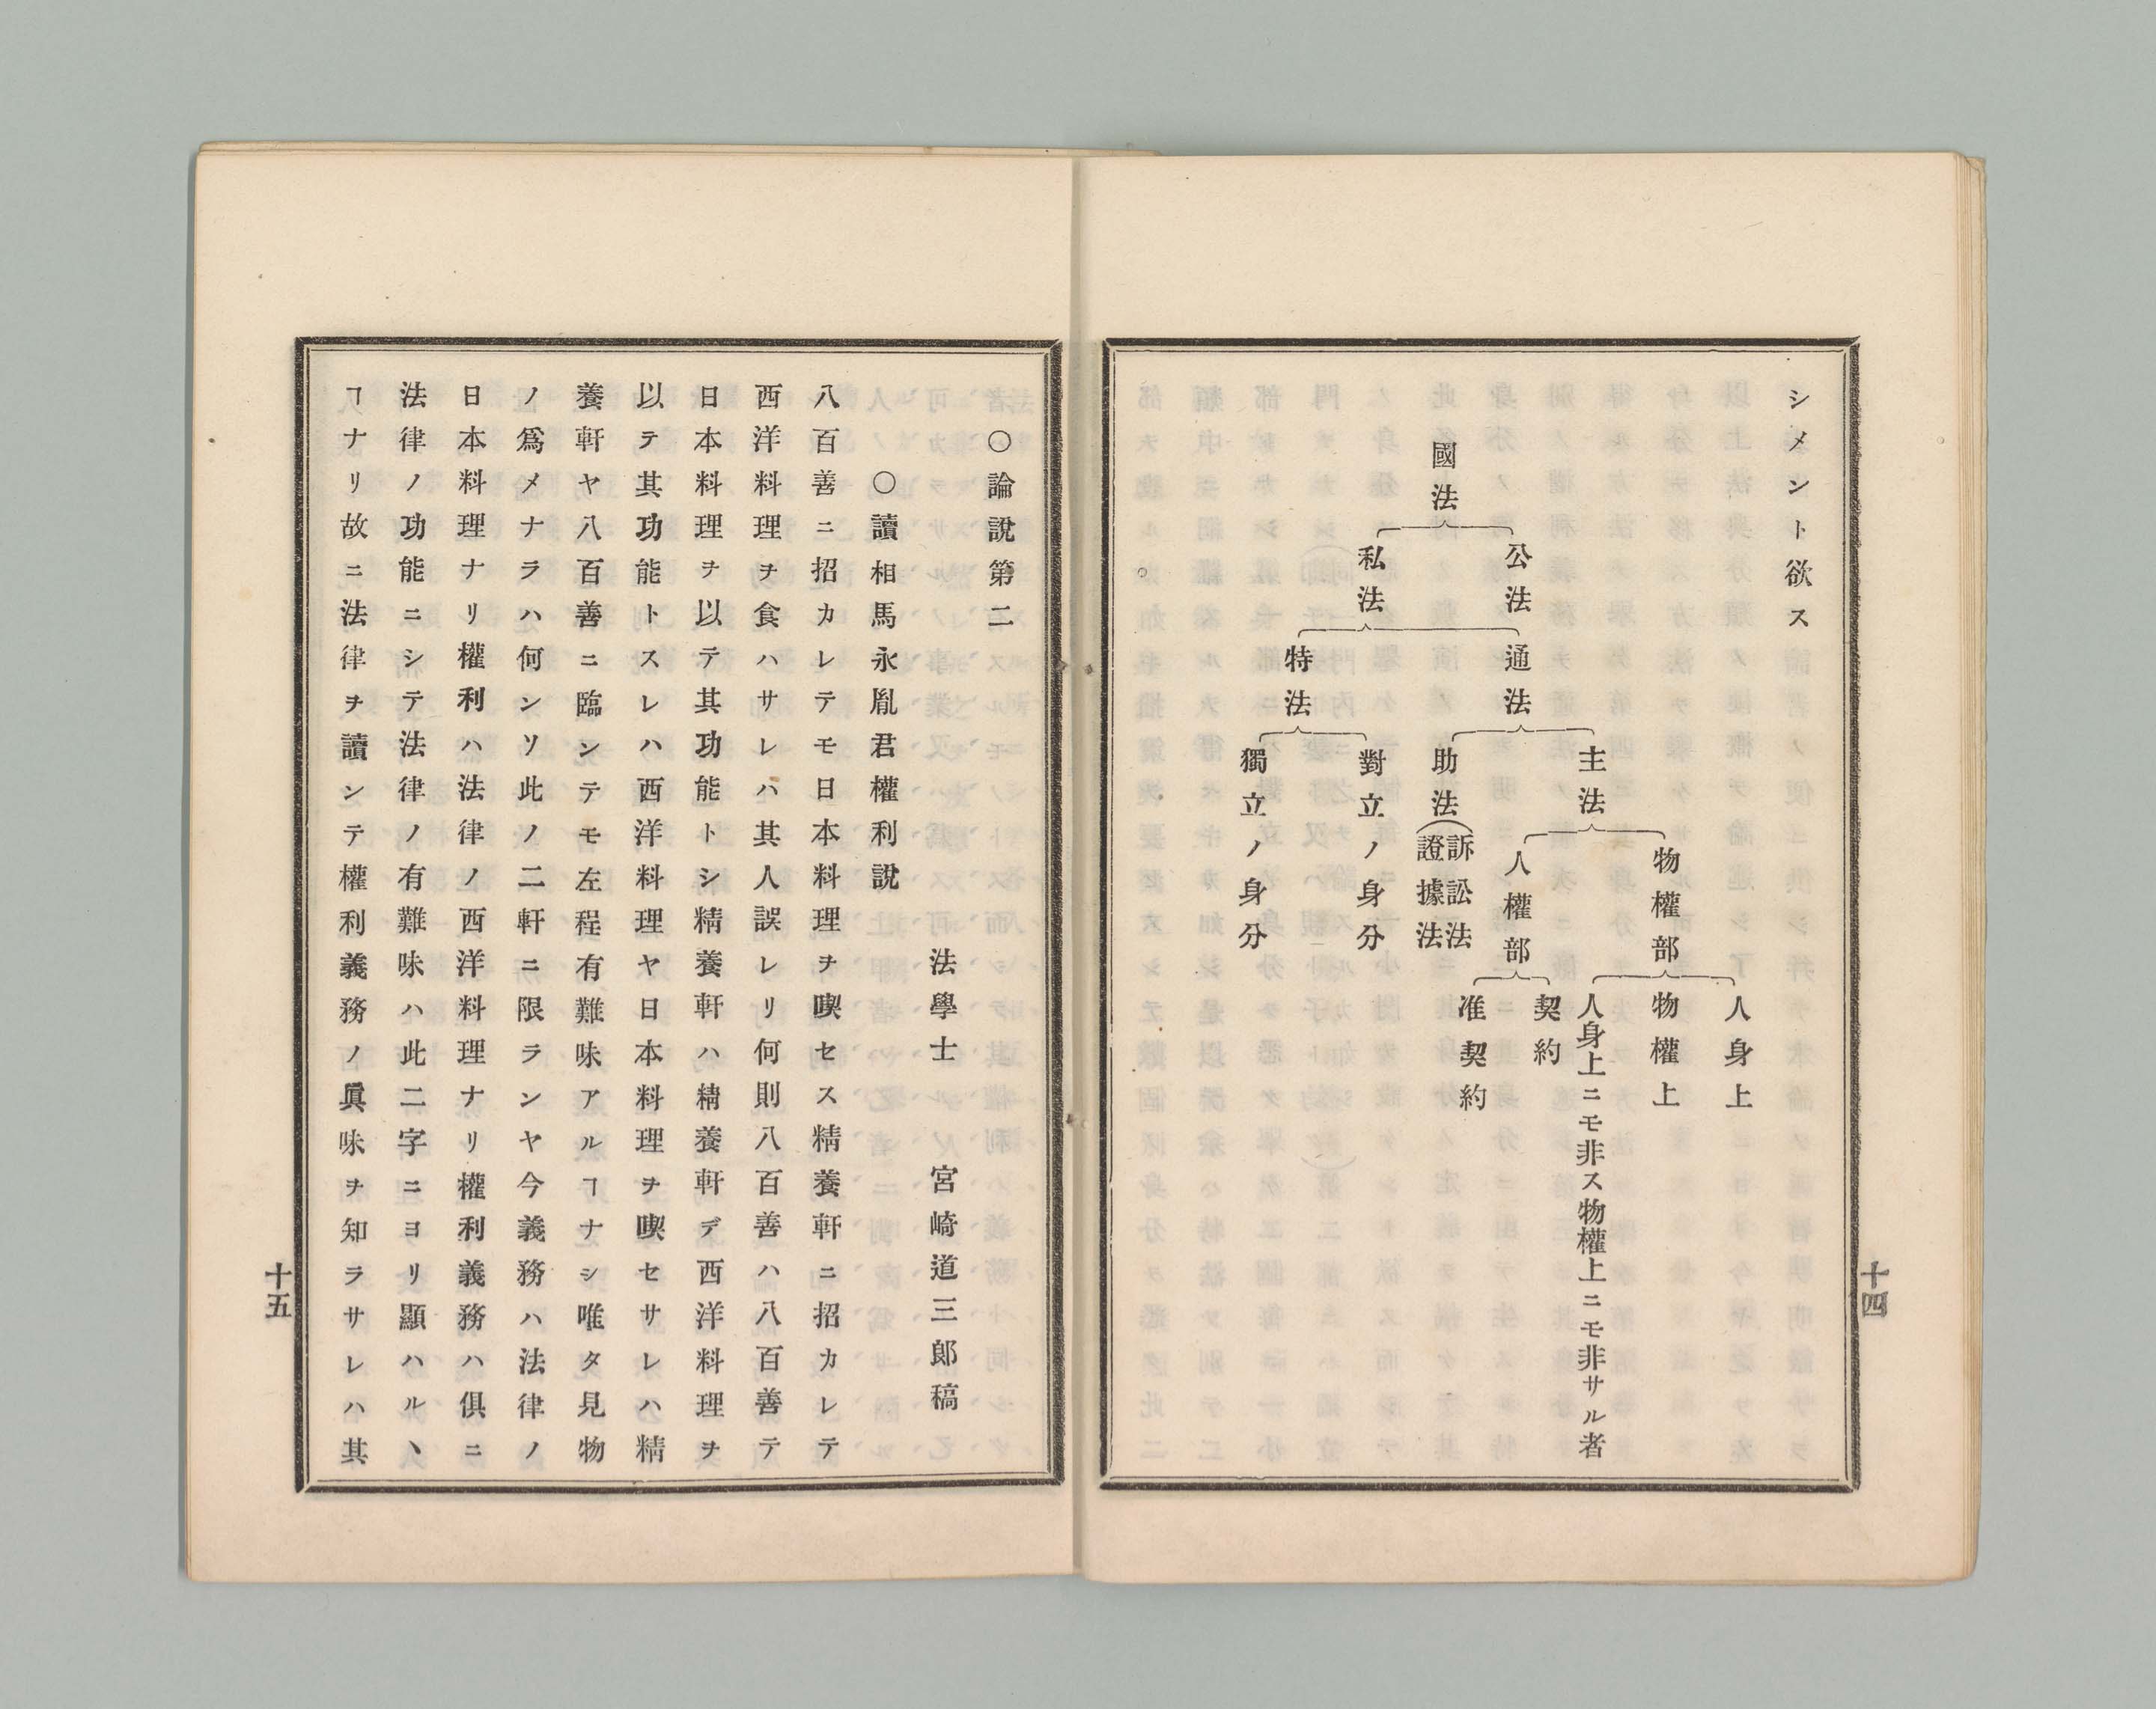 シメント欲ス
國法
公法
私法
通法
特法
主法
助法(訴訟法
證據法
對立ノ身分
獨立ノ身分
物權部
人權部
人身上
物權上
人身上ニモ非ス物權上ニモ非サル者
契約
准契約
十四
○論說第二
法學士 宮崎道三郎稿
○讀相馬永胤君權利說
八百善ニ招カレテモ日本料理ヲ喫セス精養軒ニ招カレテ
西洋料理ヲ食ハサレハ其人誤レリ何則八百善ハ八百善テ
日本料理ヲ以テ其功能トシ精養軒ハ精養軒デ西洋料理ヲ
以テ其功能トスレハ西洋料理ヤ日本料理ヲ喫セサレハ精
養軒ヤ八百善ニ臨ンテモ左程有難味アルヿナシ唯タ見物
ノ爲メナラハ何ンソ此ノ二軒ニ限ランヤ今義務ハ法律ノ
日本料理ナリ權利ハ法律ノ西洋料理ナリ權利義務ハ俱ニ
法律ノ功能ニシテ法律ノ有難味ハ此二字ニヨリ顯ハルヽ
ヿナリ故ニ法律ヲ讀シテ權利義務ノ眞味ヲ知ラサレハ其
十五